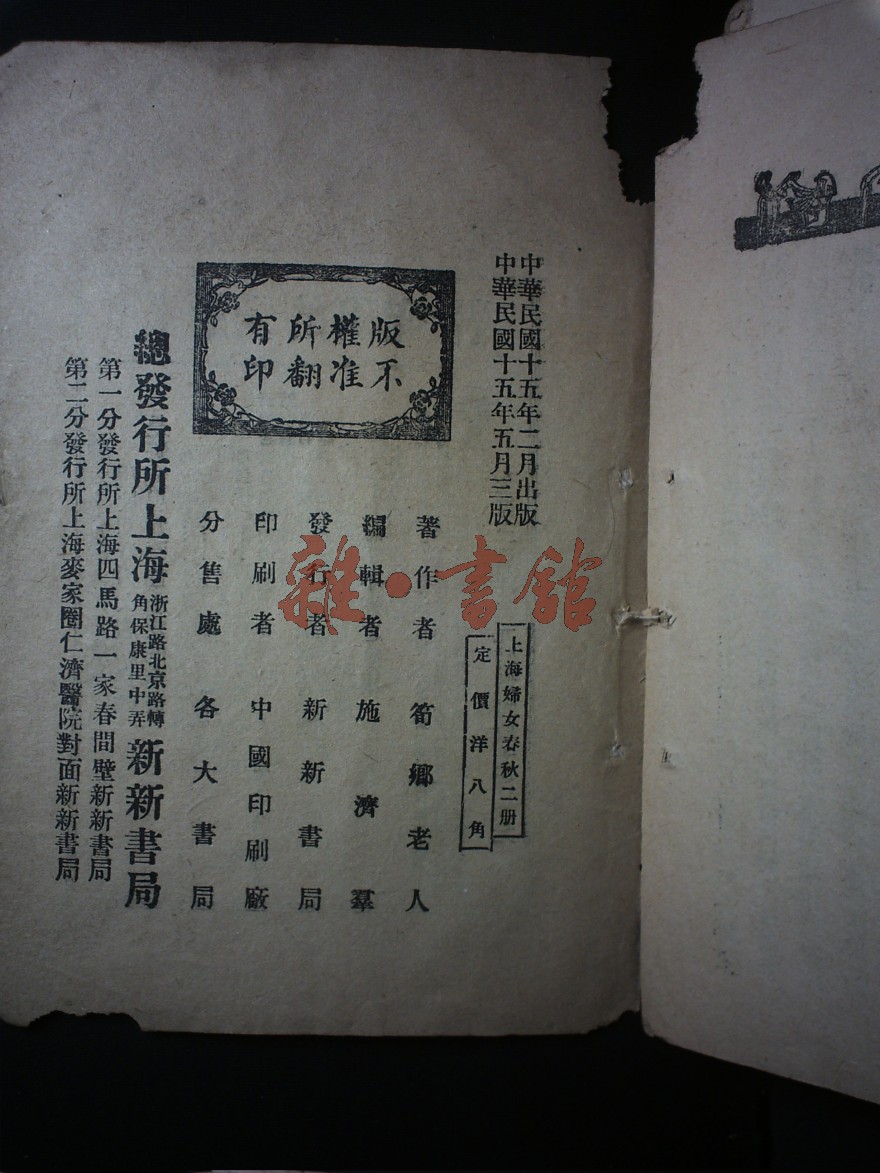 中華民國十五年二月出版
中華民國十五年五月三版
上海婦女春秋二册
定價洋八角
版權所有
不准翻印
著作者 筍鄉老人
編輯者 施濟羣
發行者 新新書局
印刷者 中國印刷廠
分售處 各大書局
總發行所上海浙江路北京路轉角保康里中弄新新書局
第一分發行所上海四馬路一家春間壁新新書局
第二分發行所上海麥家圈仁濟醫院對面新新書局
雜·書館